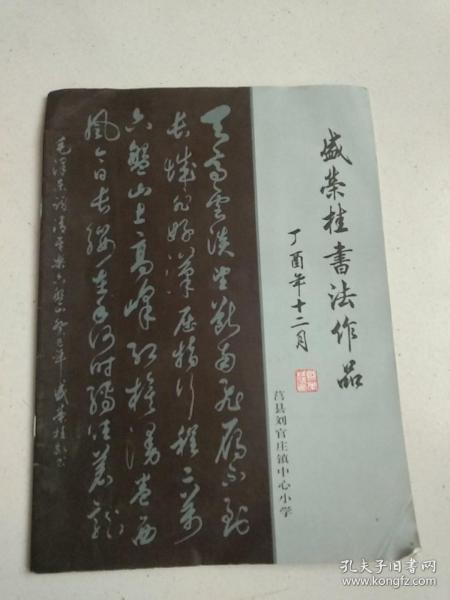 盛荣桂書法作品
丁酉年十二月
莒县刘官庄镇中心小学
天高雲淡望斷南飛雁不到
長城非好漢屈指行程二萬
六盤山上高峰紅旗漫卷西
風今日長纓在手何時縛住蒼龍
毛澤东词清平樂六盤山癸巳年盛荣桂书
孔夫子旧书网
www.kongfz.com